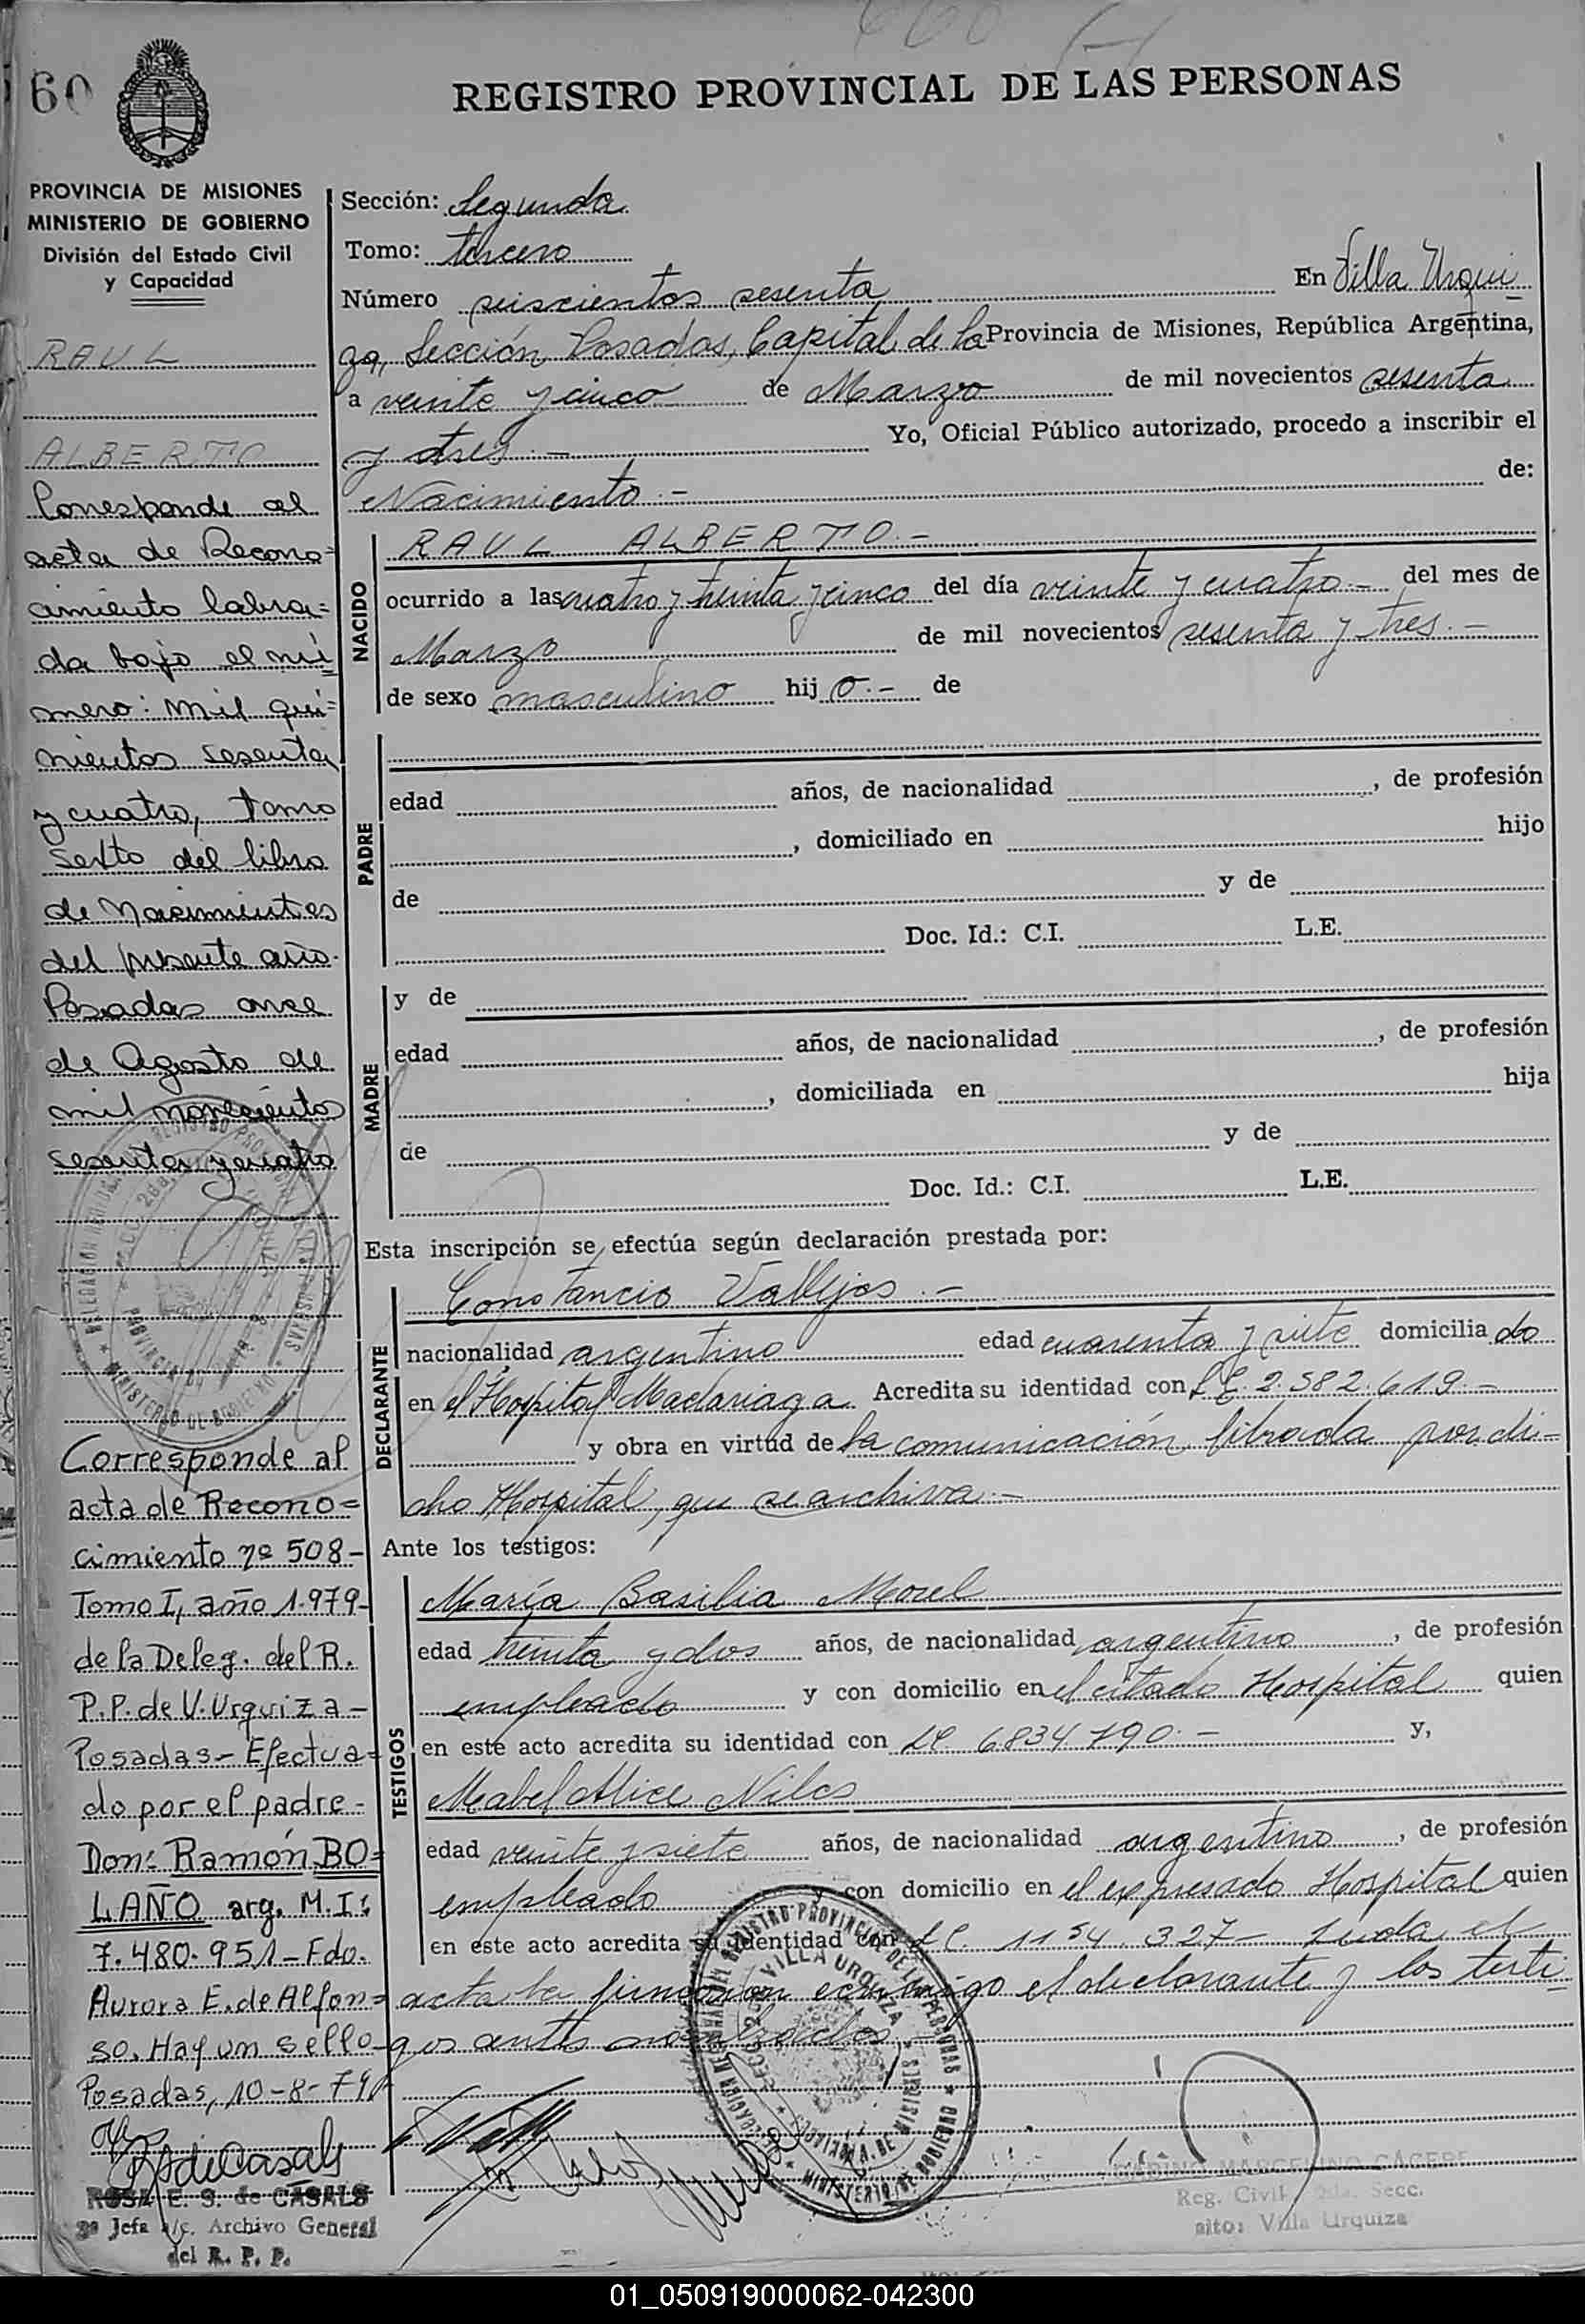 660
60
REGISTRO PROVINCIAL DE LAS PERSONAS
PROVINCIA DE MISIONES
MINISTERIO DE GOBIERNO
División del Estado Civil
y Capacidad
RAUL
ALBERTO
Corresponde al
acta de Recono=
cimiento labra=
da bajo el nú
mero: mil qui=
nientos sesenta
y cuatro, tomo
sexto del libro
de Nacimientos
del presente año.
Posadas once
de Agosto de
mil novecientos
sesenta y cuatro
Corresponde al
acta de Recono=
cimiento nº 508-
Tomo I, año 1.979-
de la Deleg. del R.
P.P. de V. Urquiza-
Posadas- Efectua=
do por el padre-
Don: Ramón BO=
LAÑO arg. M.I:
7.480.951-Fdo.
Aurora E. de Alfon=
so. Hay un sello-
Posadas, 10-8-79
RSdeCasals
ROSA E. S. de CASALS
2ª Jefa a/c. Archivo General
del R. P. P.
Sección: Segunda
Tomo: tercero
Número seiscientos sesenta En Villa Urqui
za, Sección Posadas, Capital de la Provincia de Misiones, República Argentina,
a veinte y cinco de Marzo de mil novecientos sesenta
y tres.- Yo, Oficial Público autorizado, procedo a inscribir el
Nacimiento.- de:
NACIDO
RAUL ALBERTO.-
ocurrido a las cuatro y treinta y cinco del día veinte y cuatro.- del mes de
Marzo de mil novecientos sesenta y tres.-
de sexo masculino hij o.- de
PADRE
edad años, de nacionalidad , de profesión
, domiciliado en hijo
de y de
Doc. Id.: C.I. L.E.
MADRE
y de
edad años, de nacionalidad , de profesión
, domiciliada en hija
de y de
Doc. Id.: C.I. L.E.
Esta inscripción se efectúa según declaración prestada por:
DECLARANTE
Constancio Vallejos.-
nacionalidad argentino edad cuarenta y siete domicilia do
en el Hospital Madariaga Acredita su identidad con L.E. 2.582.619.-
y obra en virtud de la comunicación librada por di=
cho Hospital, que se archiva.-
Ante los testigos:
TESTIGOS
María Basilia Morel
edad treinta y dos años, de nacionalidad argentino , de profesión
empleado y con domicilio en el citado Hospital quien
en este acto acredita su identidad con LC 6834790.- y,
Mabel Alice Niles
edad veinte y siete años, de nacionalidad argentino , de profesión
empleado y con domicilio en el expresado Hospital quien
en este acto acredita su identidad con LC. 1154.327- Leída el
acta la firmaron conmigo el declarante y los testi
gos antes nombrados.-
MARCELINO CACERE
Reg. Civil 2da. Secc.
Villa Urquiza
01_050919000062-042300